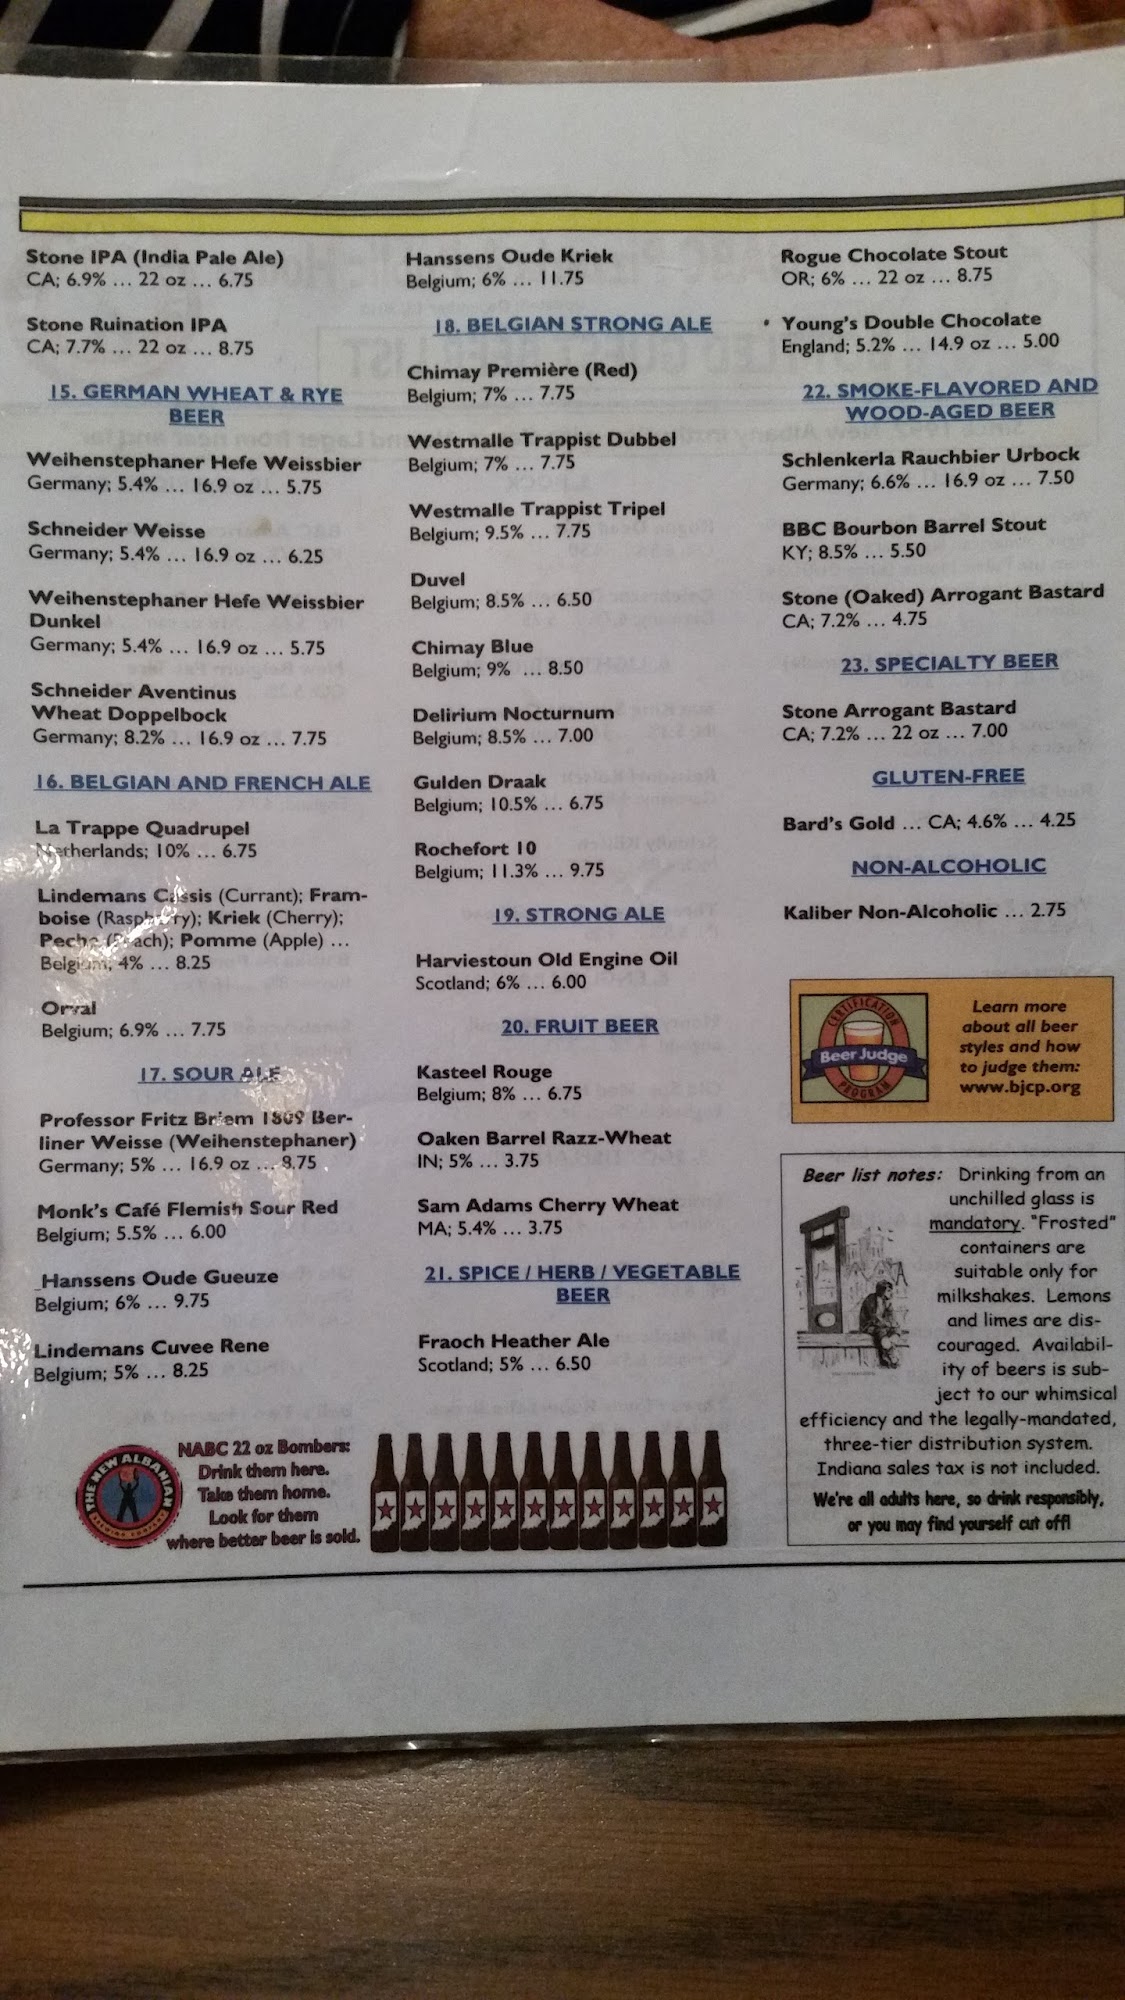 Stone IPA (India Pale Ale)
CA; 6.9% ... 22 oz ... 6.75
Stone Ruination IPA
CA; 7.7% ... 22 oz ... 8.75
15. GERMAN WHEAT & RYE
BEER
Weihenstephaner Hefe Weissbier
Germany; 5.4% ... 16.9 oz ... 5.75
Schneider Weisse
Germany; 5.4% ... 16.9 oz ... 6.25
Weihenstephaner Hefe Weissbier
Dunkel
Germany; 5.4% ... 16.9 oz ... 5.75
Schneider Aventinus
Wheat Doppelbock
Germany; 8.2% ... 16.9 oz ... 7.75
16. BELGIAN AND FRENCH ALE
La Trappe Quadrupel
Netherlands; 10% ... 6.75
Lindemans Cassis (Currant); Fram-
boise (Raspberry); Kriek (Cherry);
Peche (Peach); Pomme (Apple) ...
Belgium; 4% ... 8.25
Orval
Belgium; 6.9% ... 7.75
17. SOUR ALE
Professor Fritz Briem 1809 Ber-
liner Weisse (Weihenstephaner)
Germany; 5% ... 16.9 oz ... 8.75
Monk's Café Flemish Sour Red
Belgium; 5.5% ... 6.00
_Hanssens Oude Gueuze
Belgium; 6% ... 9.75
Lindemans Cuvee Rene
Belgium; 5% ... 8.25
Hanssens Oude Kriek
Belgium; 6% ... 11.75
18. BELGIAN STRONG ALE
Chimay Première (Red)
Belgium; 7% ... 7.75
Westmalle Trappist Dubbel
Belgium; 7% ... 7.75
Westmalle Trappist Tripel
Belgium; 9.5% ... 7.75
Duvel
Belgium; 8.5% ... 6.50
Chimay Blue
Belgium; 9% ... 8.50
Delirium Nocturnum
Belgium; 8.5% ... 7.00
Gulden Draak
Belgium; 10.5% ... 6.75
Rochefort 10
Belgium; 11.3% ... 9.75
19. STRONG ALE
Harviestoun Old Engine Oil
Scotland; 6% ... 6.00
20. FRUIT BEER
Kasteel Rouge
Belgium; 8% ... 6.75
Oaken Barrel Razz-Wheat
IN; 5% ... 3.75
Sam Adams Cherry Wheat
MA; 5.4% ... 3.75
21. SPICE / HERB / VEGETABLE
BEER
Fraoch Heather Ale
Scotland; 5% ... 6.50
Rogue Chocolate Stout
OR; 6% ... 22 oz ... 8.75
• Young's Double Chocolate
England; 5.2% ... 14.9 oz ... 5.00
22. SMOKE-FLAVORED AND
WOOD-AGED BEER
Schlenkerla Rauchbier Urbock
Germany; 6.6% ... 16.9 oz ... 7.50
BBC Bourbon Barrel Stout
KY; 8.5% ... 5.50
Stone (Oaked) Arrogant Bastard
CA; 7.2% ... 4.75
23. SPECIALTY BEER
Stone Arrogant Bastard
CA; 7.2% ... 22 oz ... 7.00
GLUTEN-FREE
Bard's Gold ... CA; 4.6% ... 4.25
NON-ALCOHOLIC
Kaliber Non-Alcoholic ... 2.75
CERTIFICATION
Beer Judge
PROGRAM
Learn more
about all beer
styles and how
to judge them:
www.bjcp.org
Beer list notes: Drinking from an
unchilled glass is
mandatory. "Frosted"
containers are
suitable only for
milkshakes. Lemons
and limes are dis-
couraged. Availabil-
ity of beers is sub-
ject to our whimsical
efficiency and the legally-mandated,
three-tier distribution system.
Indiana sales tax is not included.
We're all adults here, so drink responsibly,
or you may find yourself cut off!
THE NEW ALBANIAN
BREWING COMPANY
NABC 22 oz Bombers:
Drink them here.
Take them home.
Look for them
where better beer is sold.